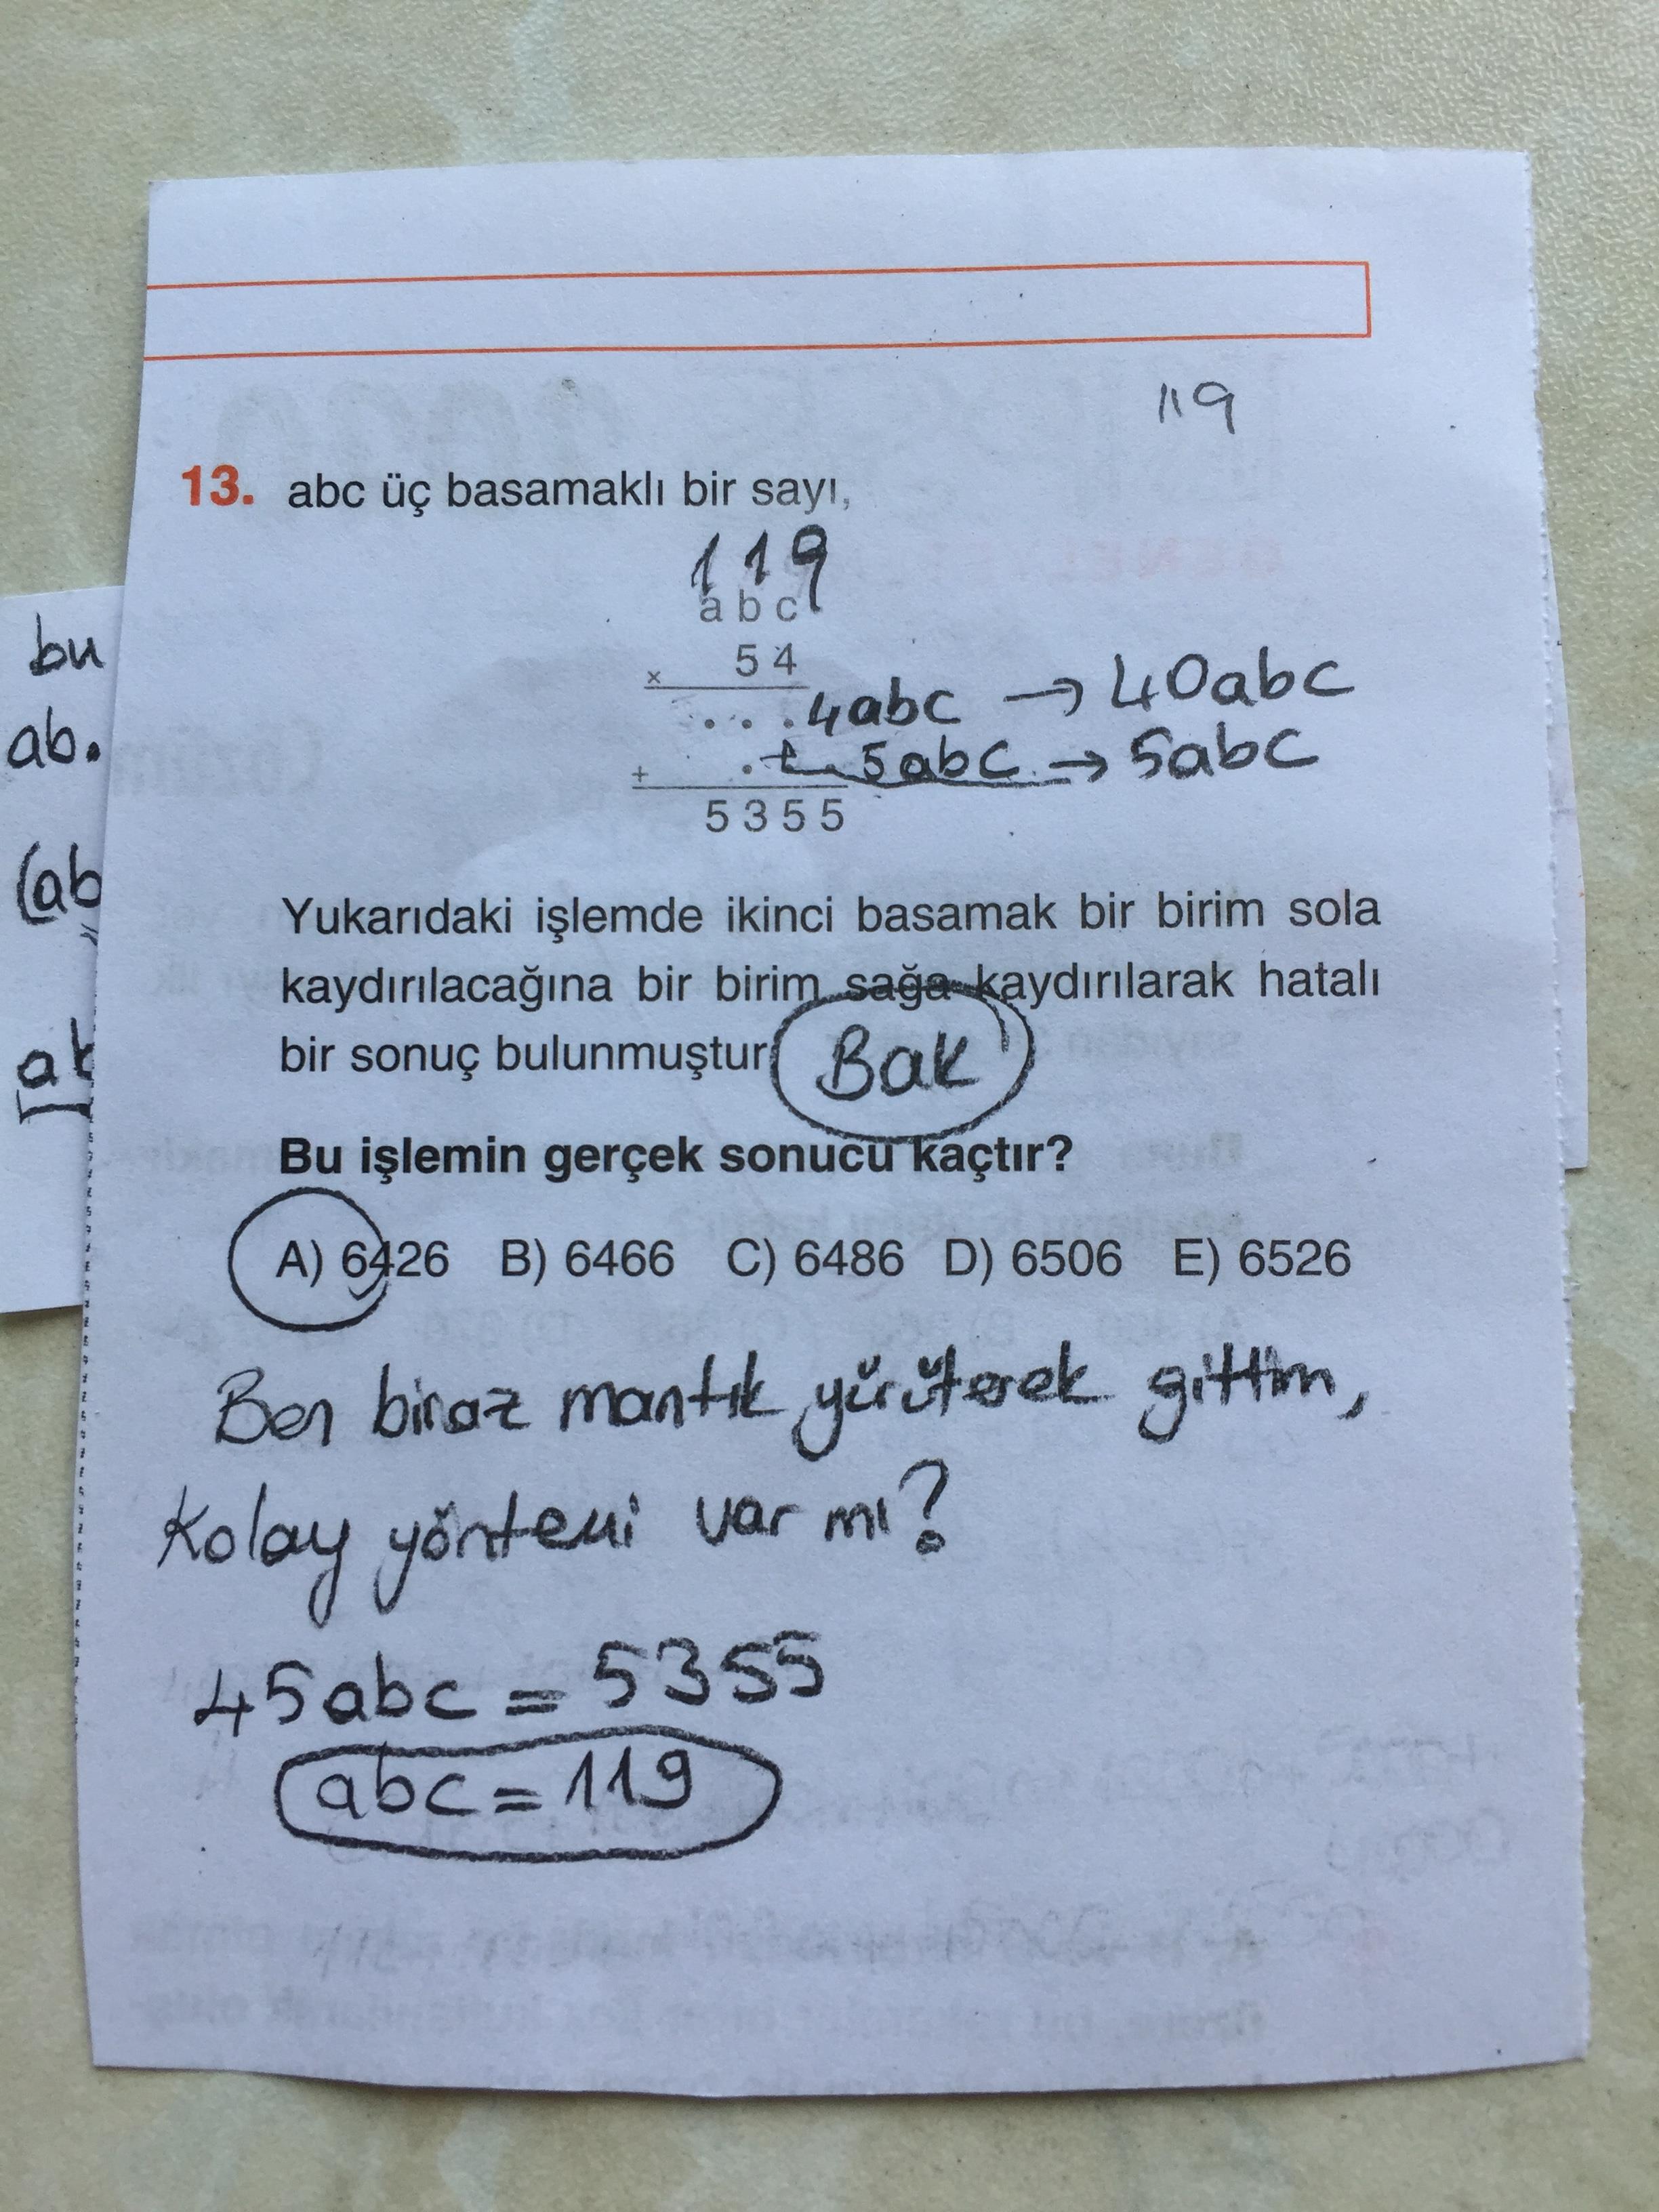 119
13. abc üç basamaklı bir sayı,
119
a b c
5 4
x
. . . 4abc → 40abc
+ . . . 5abc → 5abc
5 3 5 5
Yukarıdaki işlemde ikinci basamak bir birim sola
kaydırılacağına bir birim sağa kaydırılarak hatalı
bir sonuç bulunmuştur Bak
Bu işlemin gerçek sonucu kaçtır?
A) 6426 B) 6466 C) 6486 D) 6506 E) 6526
Ben biraz mantık yürüterek gittim,
Kolay yöntemi var mı?
45abc = 5355
abc = 119
bu
ab.
(ab